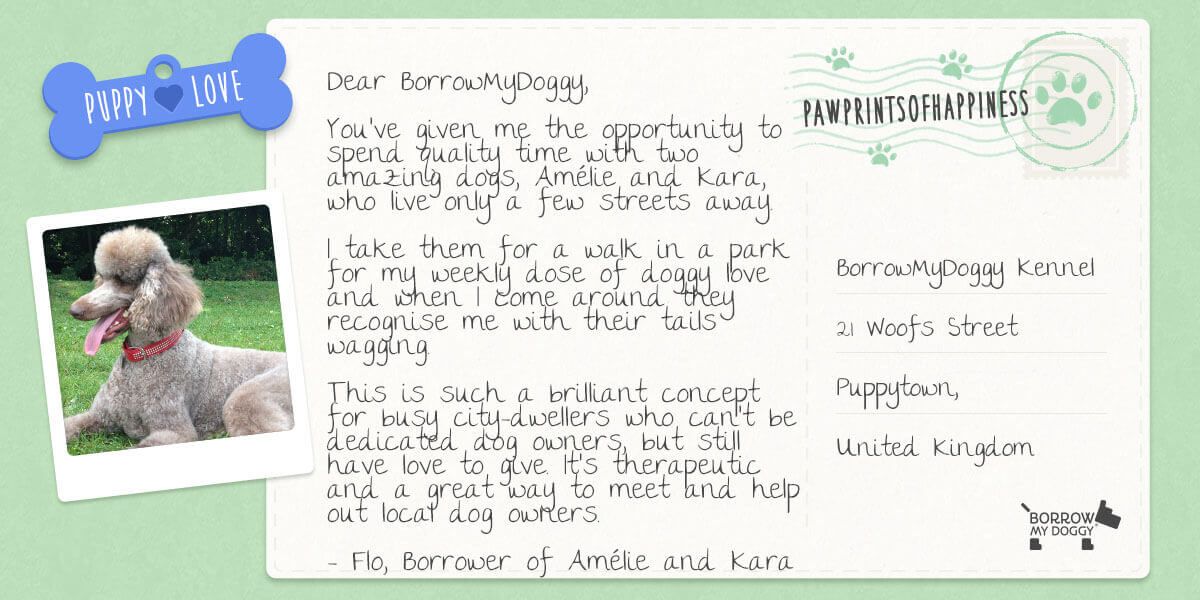 PUPPY LOVE
Dear BorrowMyDoggy,
You've given me the opportunity to
spend quality time with two
amazing dogs, Amélie and Kara,
who live only a few streets away.
I take them for a walk in a park
for my weekly dose of doggy love
and when I come around they
recognise me with their tails
wagging.
This is such a brilliant concept
for busy city-dwellers who can't be
dedicated dog owners, but still
have love to give. It's therapeutic
and a great way to meet and help
out local dog owners.
- Flo, Borrower of Amélie and Kara
PAWPRINTSOFHAPPINESS
BorrowMyDoggy Kennel
21 Woofs Street
Puppytown,
United Kingdom
BORROW
MY DOGGY